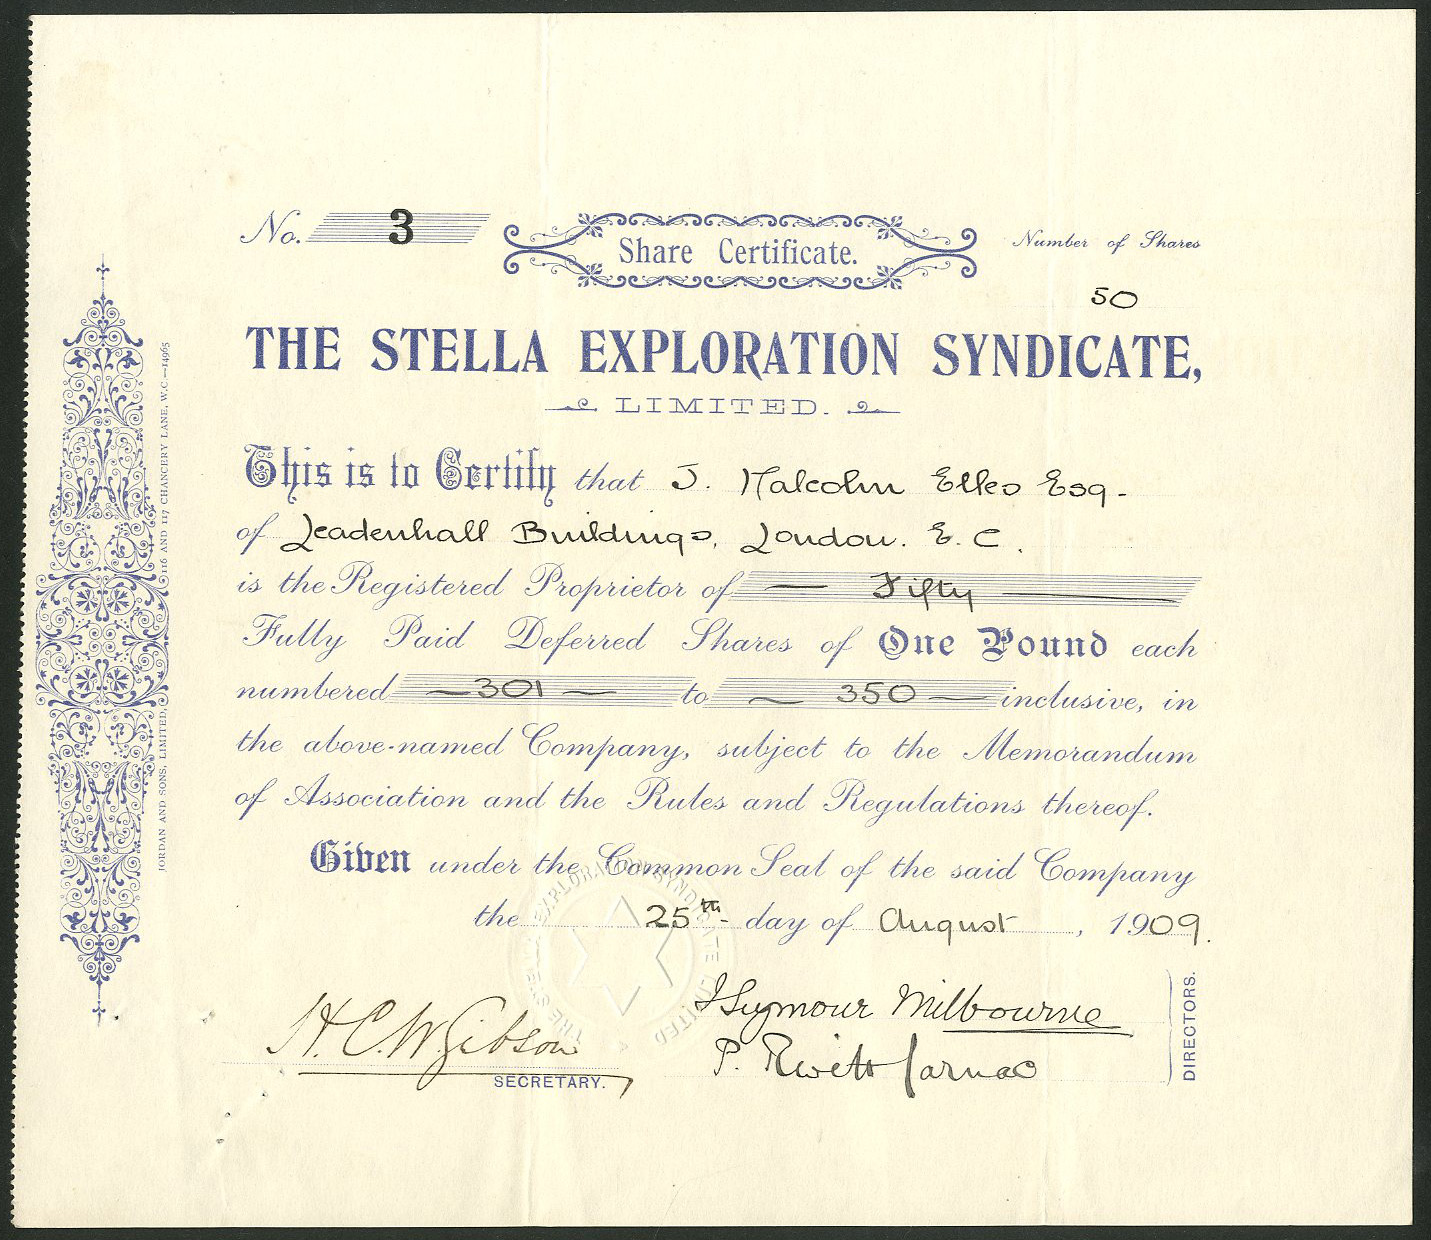 No. 3
Share Certificate.
Number of Shares
50
THE STELLA EXPLORATION SYNDICATE,
LIMITED.
This is to Certify that J. Malcolm Elles Esq.
of Leadenhall Buildings, London. E. C.
is the Registered Proprietor of — Fifty —
Fully Paid Deferred Shares of One Pound each
numbered — 301 — to — 350 — inclusive, in
the above-named Company, subject to the Memorandum
of Association and the Rules and Regulations thereof.
Given under the Common Seal of the said Company
the 25th day of August, 1909.
H. C. W. Gibson
SECRETARY.
Seymour Milbourne
P. Rivett Carnac
DIRECTORS.
JORDAN AND SONS, LIMITED, 116 AND 117 CHANCERY LANE, W.C.—14965
THE STELLA EXPLORATION SYNDICATE LIMITED